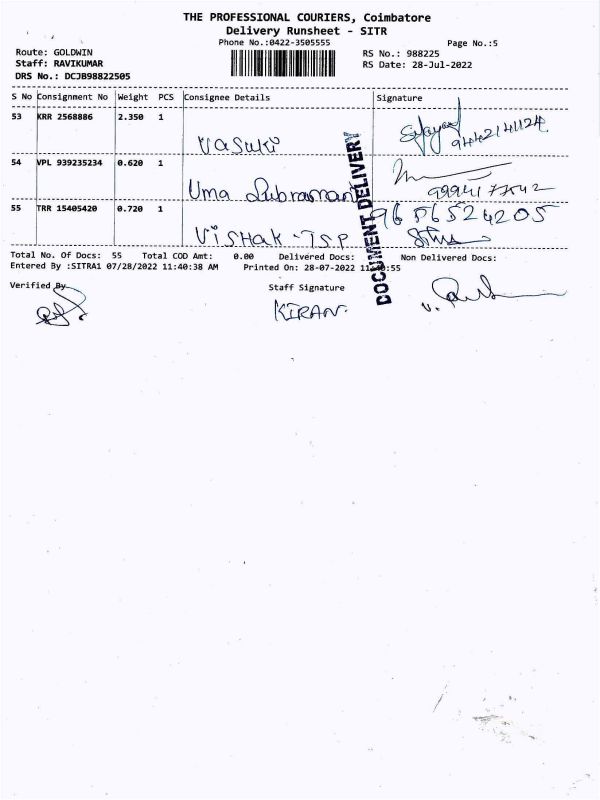 THE PROFESSIONAL COURIERS, Coimbatore
Delivery Runsheet - SITR
Phone No.:0422-3505555
Page No.:5
Route: GOLDWIN
RS No.: 988225
Staff: RAVIKUMAR
RS Date: 28-Jul-2022
DRS No.: DCJB98822505
S No Consignment No Weight PCS Consignee Details Signature
53 KRR 2568886 2.350 1
Vasuki
9442141124
54 VPL 939235234 0.620 1
Uma Subraman
9994177542
55 TRR 15405420 0.720 1
9656524205
Vishak - TSP
DOCUMENT DELIVERY
Total No. Of Docs: 55 Total COD Amt: 0.00 Delivered Docs: Non Delivered Docs:
Entered By :SITRA1 07/28/2022 11:40:38 AM Printed On: 28-07-2022 11:40:55
Verified By
Staff Signature
KIRAN.